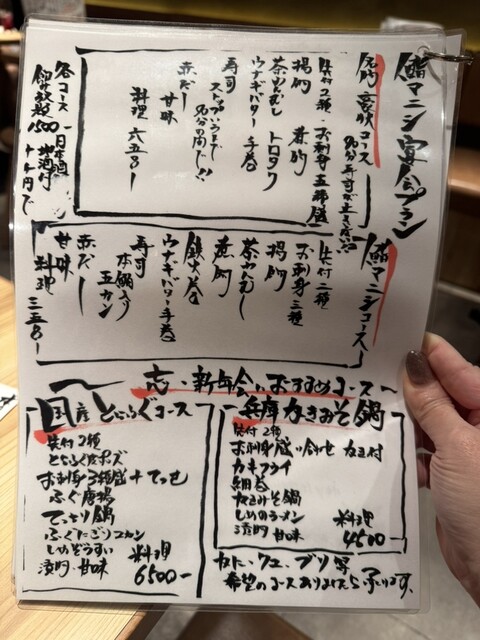 鮨マニシ宴会プラン
名物 豪快コース
90分寿司が止まらない!?
先付2種・お刺身五種盛
揚物 煮物
茶わんむし トロタク
ウナギバター手巻
寿司
ストップいうまで
90分間で!!
赤だし
甘味
料理 六五〇〇ー
各コース
飲み放題 1500
日本酒 地酒付
鮨マニシコース
先付二種
お刺身三種
揚物
茶わんむし
煮物
鉄火巻
ウナギバター手巻
寿司
本鮪入り
五カン
赤だし
甘味
料理 三五〇〇ー
忘・新年会におすすめコース〜
国産とらふくコース
先付2種
とらふぐ皮ポン
お刺身3種盛+てっさ
ふぐ唐揚
てっちり鍋
ふぐにごり2カン
しめぞうすい
漬物・甘味
料理
6500ー
兵庫カキみそ鍋
先付2種
お刺身盛り合わせ
カキフライ
細巻
カキみそ鍋
しめのラーメン
漬物 甘味
料理
4500ー
カニ・クエ・ブリ等
希望のコースありましたら承ります。